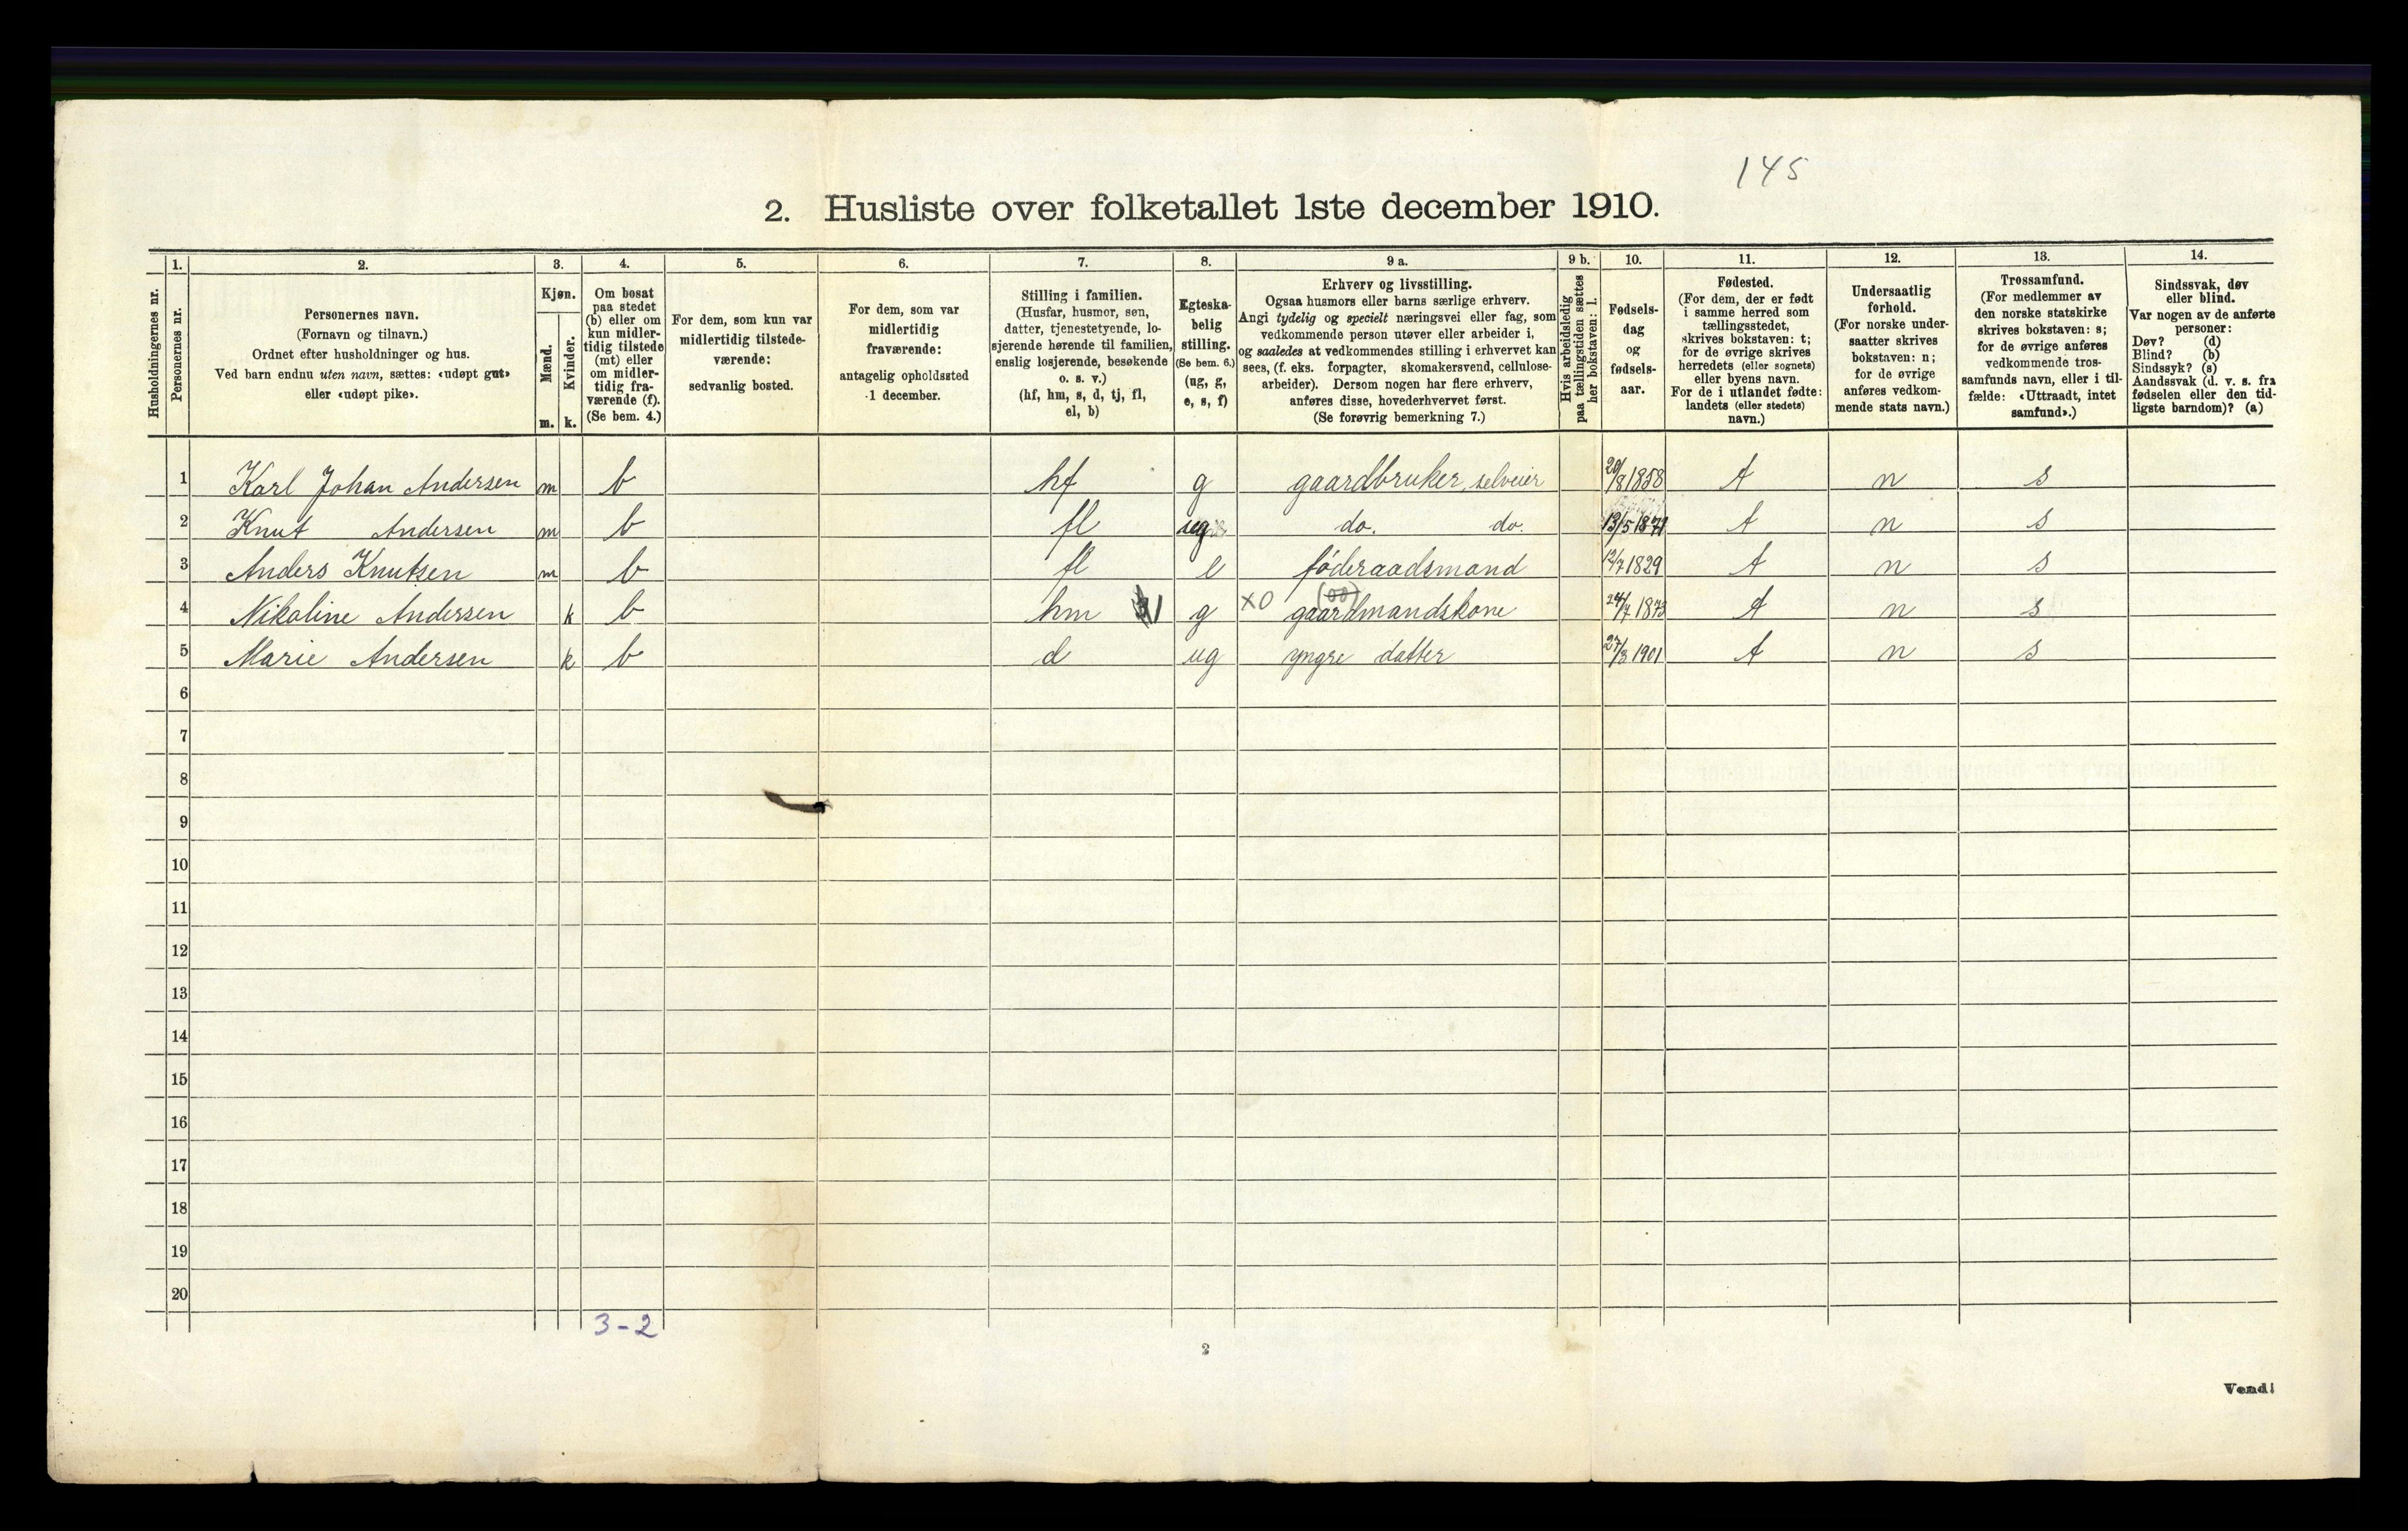 145
2. Husliste over folketallet 1ste december 1910.
Husholdningernes nr.
1.
Personernes nr.
2.
Personernes navn.
(Fornavn og tilnavn.)
Ordnet efter husholdninger og hus.
Ved barn endnu uten navn, sættes: «udøpt gut»
eller «udøpt pike».
3.
Kjøn.
Mænd.
Kvinder.
m. k.
4.
Om bosat
paa stedet
(b) eller om
kun midler-
tidig tilstede
(mt) eller
om midler-
tidig fra-
værende (f).
(Se bem. 4.)
5.
For dem, som kun var
midlertidig tilstede-
værende:
sedvanlig bosted.
6.
For dem, som var
midlertidig
fraværende:
antagelig opholdssted
1 december.
7.
Stilling i familien.
(Husfar, husmor, søn,
datter, tjenestetyende, lo-
sjerende hørende til familien,
enslig losjerende, besøkende
o. s. v.)
(hf, hm, s, d, tj, fl,
el, b)
8.
Egteska-
belig
stilling.
(Se bem. 6.)
(ug, g,
e, s, f)
9 a.
Erhverv og livsstilling.
Ogsaa husmors eller barns særlige erhverv.
Angi tydelig og specielt næringsvei eller fag, som
vedkommende person utøver eller arbeider i,
og saaledes at vedkommendes stilling i erhvervet kan
sees, (f. eks. forpagter, skomakersvend, cellulose-
arbeider). Dersom nogen har flere erhverv,
anføres disse, hovederhvervet først.
(Se forøvrig bemerkning 7.)
9 b.
Hvis arbeidsledig
paa tællingstiden sættes
her bokstaven: l.
10.
Fødsels-
dag
og
fødsels-
aar.
11.
Fødested.
(For dem, der er født
i samme herred som
tællingsstedet,
skrives bokstaven: t;
for de øvrige skrives
herredets (eller sognets)
eller byens navn.
For de i utlandet fødte:
landets (eller stedets)
navn.)
12.
Undersaatlig
forhold.
(For norske under-
saatter skrives
bokstaven: n;
for de øvrige
anføres vedkom-
mende stats navn.)
13.
Trossamfund.
(For medlemmer av
den norske statskirke
skrives bokstaven: s;
for de øvrige anføres
vedkommende tros-
samfunds navn, eller i til-
fælde: «Uttraadt, intet
samfund».)
14.
Sindssvak, døv
eller blind.
Var nogen av de anførte
personer:
Døv? (d)
Blind? (b)
Sindssyk? (s)
Aandssvak (d. v. s. fra
fødselen eller den tid-
ligste barndom)? (a)
1 Karl Johan Andersen m b hf g gaardbruker, selveier 20/8 1858 t n s
2 Knut Andersen m b fl ug do. do. 13/5 1871 t n s
3 Anders Knutsen m b fl e føderaadsmand 12/7 1829 t n s
4 Nikoline Andersen k b hm g XO (00) gaardmandskone 24/7 1873 t n s
5 Marie Andersen k b d ug yngre datter 27/3 1901 t n s
6
7
8
9
10
11
12
13
14
15
16
17
18
19
20
3-2
2
Vend!